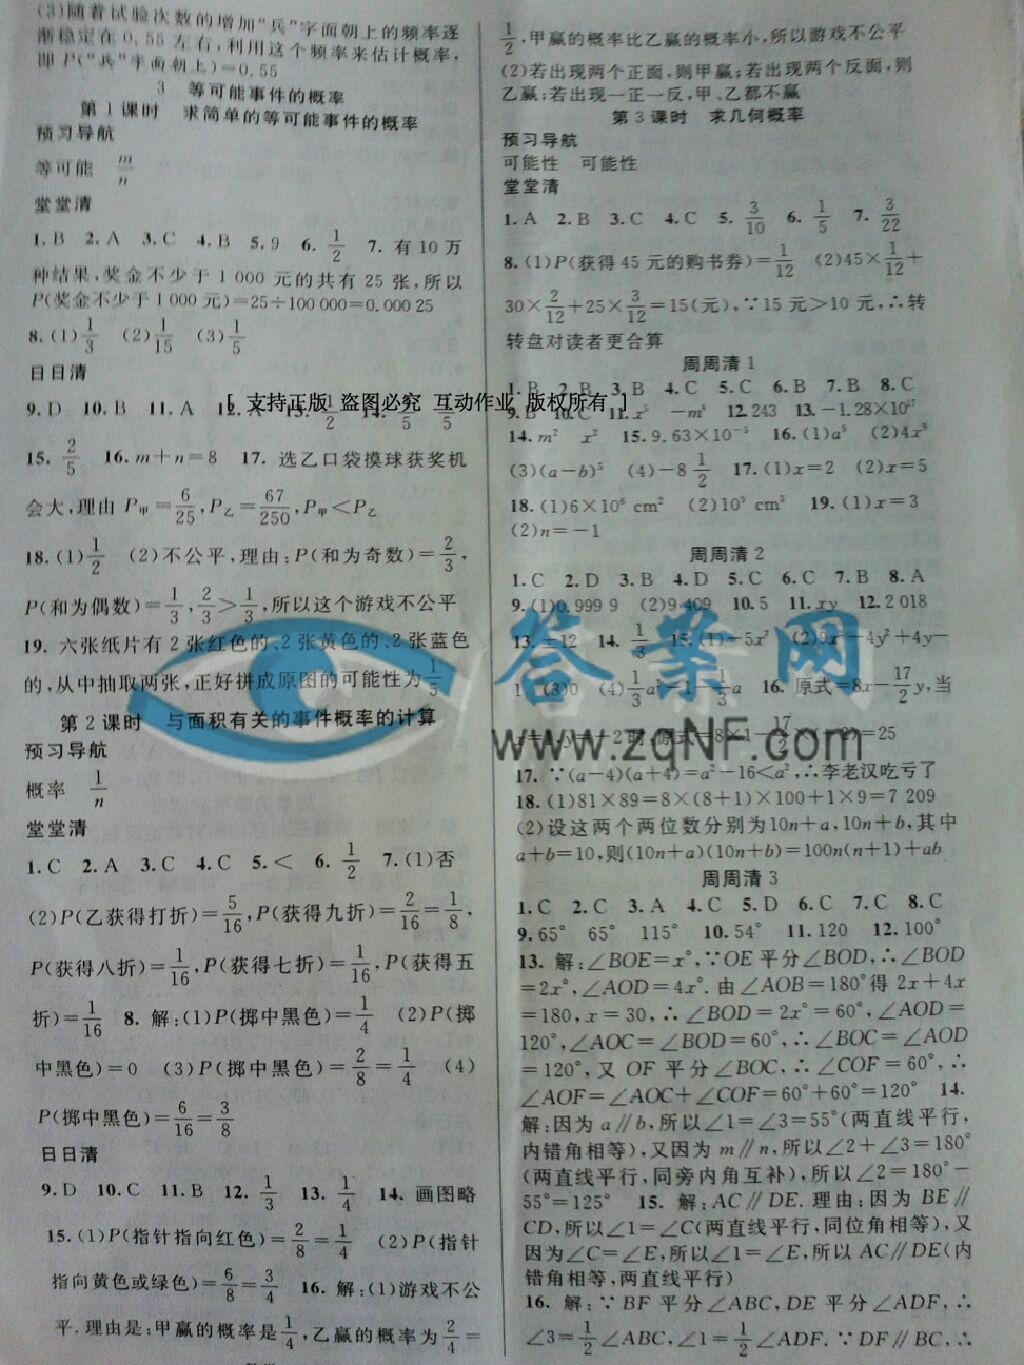 (3)随着试验次数的增加“兵”字面朝上的频率逐
渐稳定在0.55左右,利用这个频率来估计概率,
即P(“兵”字面朝上)=0.55
3 等可能事件的概率
第1课时 求简单的等可能事件的概率
预习导航
等可能 m/n
堂堂清
1. B 2. A 3. C 4. B 5. 9 6. 1/2 7. 有10万
种结果,奖金不少于1 000元的共有25张,所以
P(奖金不少于1 000元)=25÷100 000=0.000 25
8. (1)1/3 (2)1/15 (3)1/5
日日清
9. D 10. B 11. A 12. 13. 1/2 14. /5 /5
15. 2/5 16. m+n=8 17. 选乙口袋摸球获奖机
会大,理由P甲=6/25,P乙=67/250,P甲<P乙
18. (1)1/2 (2)不公平,理由:P(和为奇数)=2/3,
P(和为偶数)=1/3,2/3>1/3,所以这个游戏不公平
19. 六张纸片有2张红色的、2张黄色的、2张蓝色
的,从中抽取两张,正好拼成原图的可能性为1/5
第2课时 与面积有关的事件概率的计算
预习导航
概率 1/n
堂堂清
1. C 2. A 3. C 4. C 5. < 6. 1/2 7. (1)否
(2)P(乙获得打折)=5/16,P(获得九折)=2/16=1/8,
P(获得八折)=1/16,P(获得七折)=1/16,P(获得五
折)=1/16 8. 解:(1)P(掷中黑色)=1/4 (2)P(掷
中黑色)=0 (3)P(掷中黑色)=2/8=1/4 (4)
P(掷中黑色)=6/16=3/8
日日清
9. D 10. C 11. B 12. 1/3 13. 1/4 14. 画图略
15. (1)P(指针指向红色)=2/8=1/4 (2)P(指针
指向黄色或绿色)=6/8=3/4 16. 解:(1)游戏不公
平.理由是:甲赢的概率是1/4,乙赢的概率为2/4=
1/2,甲赢的概率比乙赢的概率小,所以游戏不公平
(2)若出现两个正面,则甲赢;若出现两个反面,则
乙赢;若出现一正一反,甲、乙都不赢
第3课时 求几何概率
预习导航
可能性 可能性
堂堂清
1. A 2. B 3. C 4. C 5. 3/10 6. 1/5 7. 3/22
8. (1)P(获得45元的购书券)=1/12 (2)45×1/12+
30×2/12+25×3/12=15(元),∵15元>10元,∴转
转盘对读者更合算
周周清1
1. B 2. B 3. B 4. C 5. C 6. B 7. B 8. C
[ 支持正版 盗图必究 互动作业 版权所有 ]
9. B 10. C 11. x⁵ 12. 243 13. -1.28×10¹⁷
14. m² x² 15. 9.63×10⁻⁵ 16. (1)a⁹ (2)4x⁸
(3)(a-b)⁵ (4)-8 1/2 17. (1)x=2 (2)x=5
18. (1)6×10⁶ cm² (2)10⁹ cm³ 19. (1)x=3
(2)n=-1
周周清2
1. C 2. D 3. B 4. D 5. C 6. C 7. B 8. A
9. (1)0.999 9 (2)9 409 10. 5 11. xy 12. 2 018
13. ±12 14. 1/3 15. (1)-5x⁷ (2)9x²-4y²+4y-
1 (3)0 (4)1/3a²-1-1/3a 16. 原式=8x-17/2y,当
原式=8×1-17/2 =25
17. ∵(a-4)(a+4)=a²-16<a²,∴李老汉吃亏了
18. (1)81×89=8×(8+1)×100+1×9=7 209
(2)设这两个两位数分别为10n+a,10n+b,其中
a+b=10,则(10n+a)(10n+b)=100n(n+1)+ab
周周清3
1. C 2. C 3. A 4. C 5. D 6. C 7. C 8. C
9. 65° 65° 115° 10. 54° 11. 120 12. 100°
13. 解:∠BOE=x°,∵OE平分∠BOD,∴∠BOD
=2x°,∠AOD=4x°.由∠AOB=180°得2x+4x
=180,x=30,∴∠BOD=2x°=60°,∠AOD=
120°,∠AOC=∠BOD=60°,∴∠BOC=∠AOD
=120°,又OF平分∠BOC,∴∠COF=60°,∴
∠AOF=∠AOC+∠COF=60°+60°=120° 14.
解:因为a∥b,所以∠1=∠3=55°(两直线平行,
内错角相等),又因为m∥n,所以∠2+∠3=180°
(两直线平行,同旁内角互补),所以∠2=180°-
55°=125° 15. 解:AC∥DE.理由:因为BE∥
CD,所以∠1=∠C(两直线平行,同位角相等),又
因为∠C=∠E,所以∠1=∠E,所以AC∥DE(内
错角相等,两直线平行)
16. 解:∵BF平分∠ABC,DE平分∠ADF,∴
∠3=1/2∠ABC,∠1=1/2∠ADF.∵DF∥BC,∴
答案网
www.zqNF.com